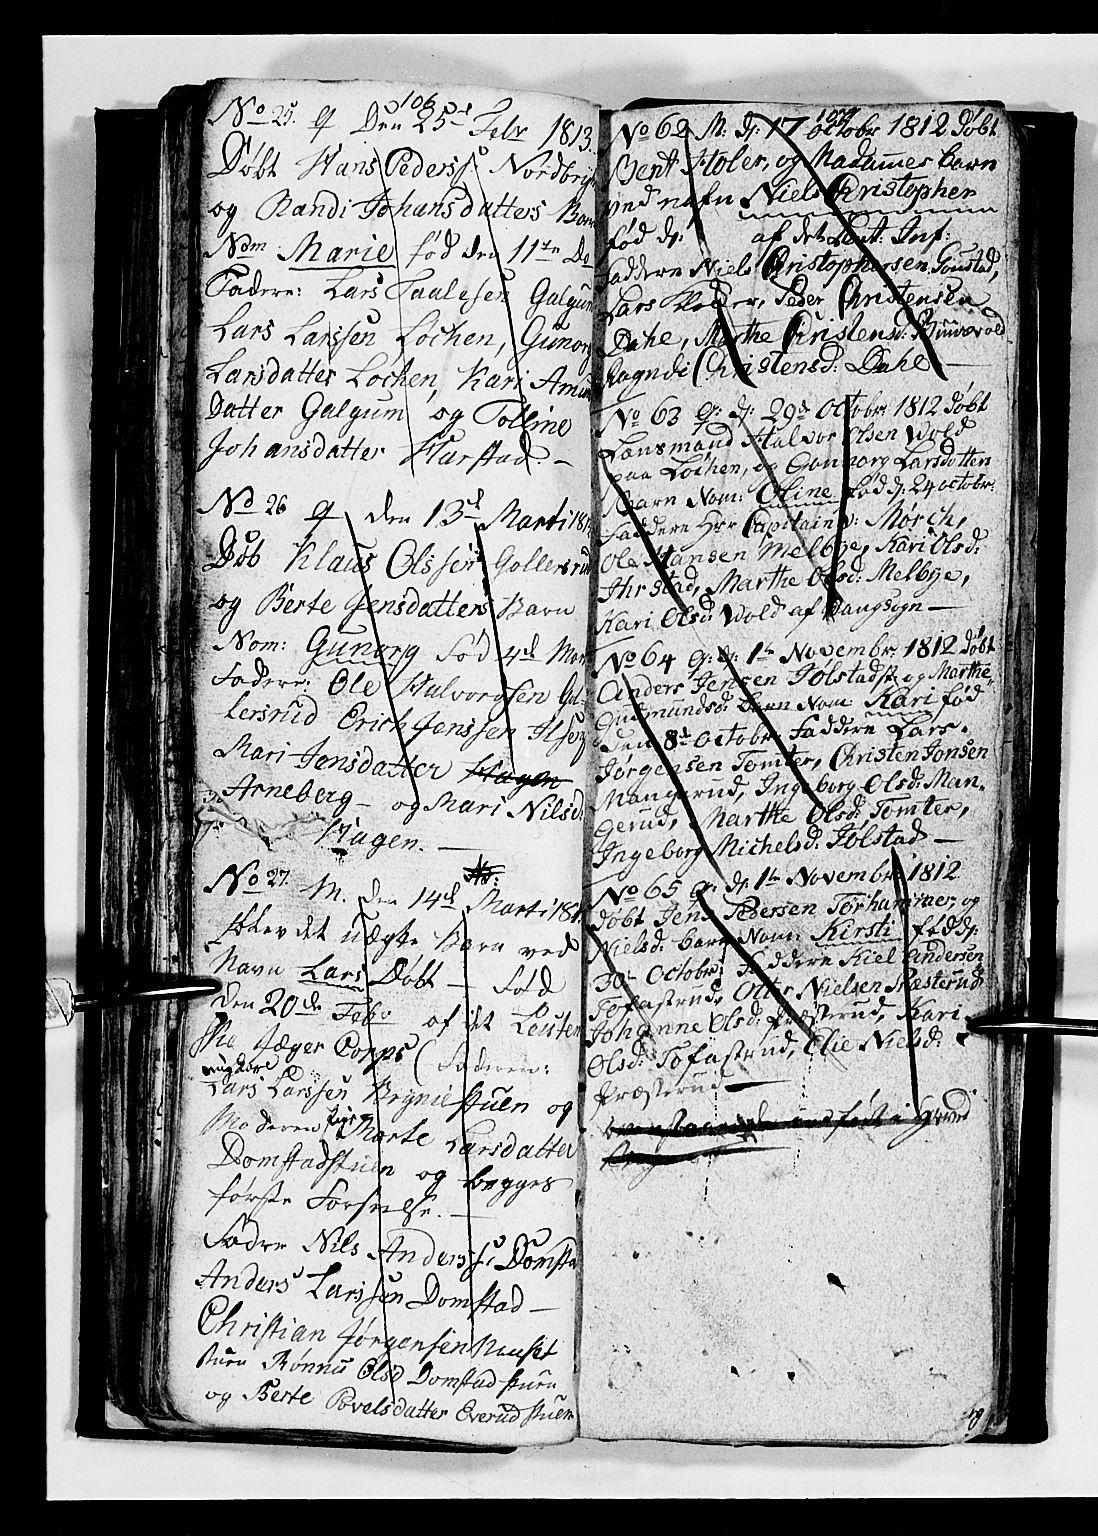 106
No 25. q Den 25d Febr 1813.
Døbt Hans Pederss: Nordbrye
og Randi Johansdatters Barn
Nom Marie fød den 11te De
Fadere: Lars Taalesen Galgum
Lars Larssen Løchen, Gunorg
Larsdatter Løchen, Kari Amun
Datter Galgum og Tolline
Johansdatter Harstad. –
No 26 q den 13d Marti 18
Døb Klaus Olssen Gollersrud
og Berte Jensdatters Barn
Nom: Gunorg fød 4d Mar
Fadere: Ole Halvorssen Gol-
lersrud Erich Jenssen Ilseng
Mari Jensdatter Hagen
Arneberg – og Mari Nilsd:
Hagen. –
No 27. M. den 14d Marti 181
Blev det uægte Barn ved
Navn Lars Døbt – fød
den 20de Febr af det Leuten
ske Jæger Corps (Faderen:
ungkarl
Lars Larssen Brynie stuen og
Moderen Pige Marte Larsdatter
Domstadstuen og begges
første Forseelse. –
Fadre Nils Anderss: Domsta
Anders Larssen Domstad –
Christian Jørgensen
stuen Rønnu Olsd Domstad stuen
og Berte Povelsdatter Everud stuen
No 62 M: d: 17 octobr 1812 døbt
Bent Holer, og Madammes barn
ved nafn Niels Christopher
fød d: af det Leut: Inf:
faddere Niels Christophersen Gaustad,
Lars Peder Christensen
Dahe, Marthe Christensd:
Ragndi Christensd: Dahe –
No 63 q: d: 29d Octobr 1812 døbt
Lønsmand Halvor Olsen Wold
paa Løchen, og Gunnorg Larsdatters
Barn Nom: Oline fød d: 24 octobr:
faddere Hr: Capitain v: Mørch,
Ole Hansen Melbye, Kari Olsd:
Marthe Olsd: Melbye,
Kari Olsd: Wold af Vangsogn –
No 64 q: d: 1te Novembr 1812 døbt
Anders Jensen Jølstads og Marthe
Gudmundsd: barn Nom Kari fød
den 8d octobr: faddere Lars
Jørgensen Tomter, Christen Jonsen
Mangerud, Ingeborg Olsd: Man-
gerud, Marthe Olsd: Tomter,
Ingeborg Michelsd: Jølstad –
No 65 q: d: 1te Novembr: 1812
døbt Jens Pedersen og
Nielsd: barn Nom: Kirsti fød d:
30te Octobr: faddere Kiel Andersen
Tofastrud, Otter Nielsen Præsterud
Johanne Olsd: Præsterud, Kari
Olsd: Tofastrud, Elie Nielsd:
Præsterud –
indført i